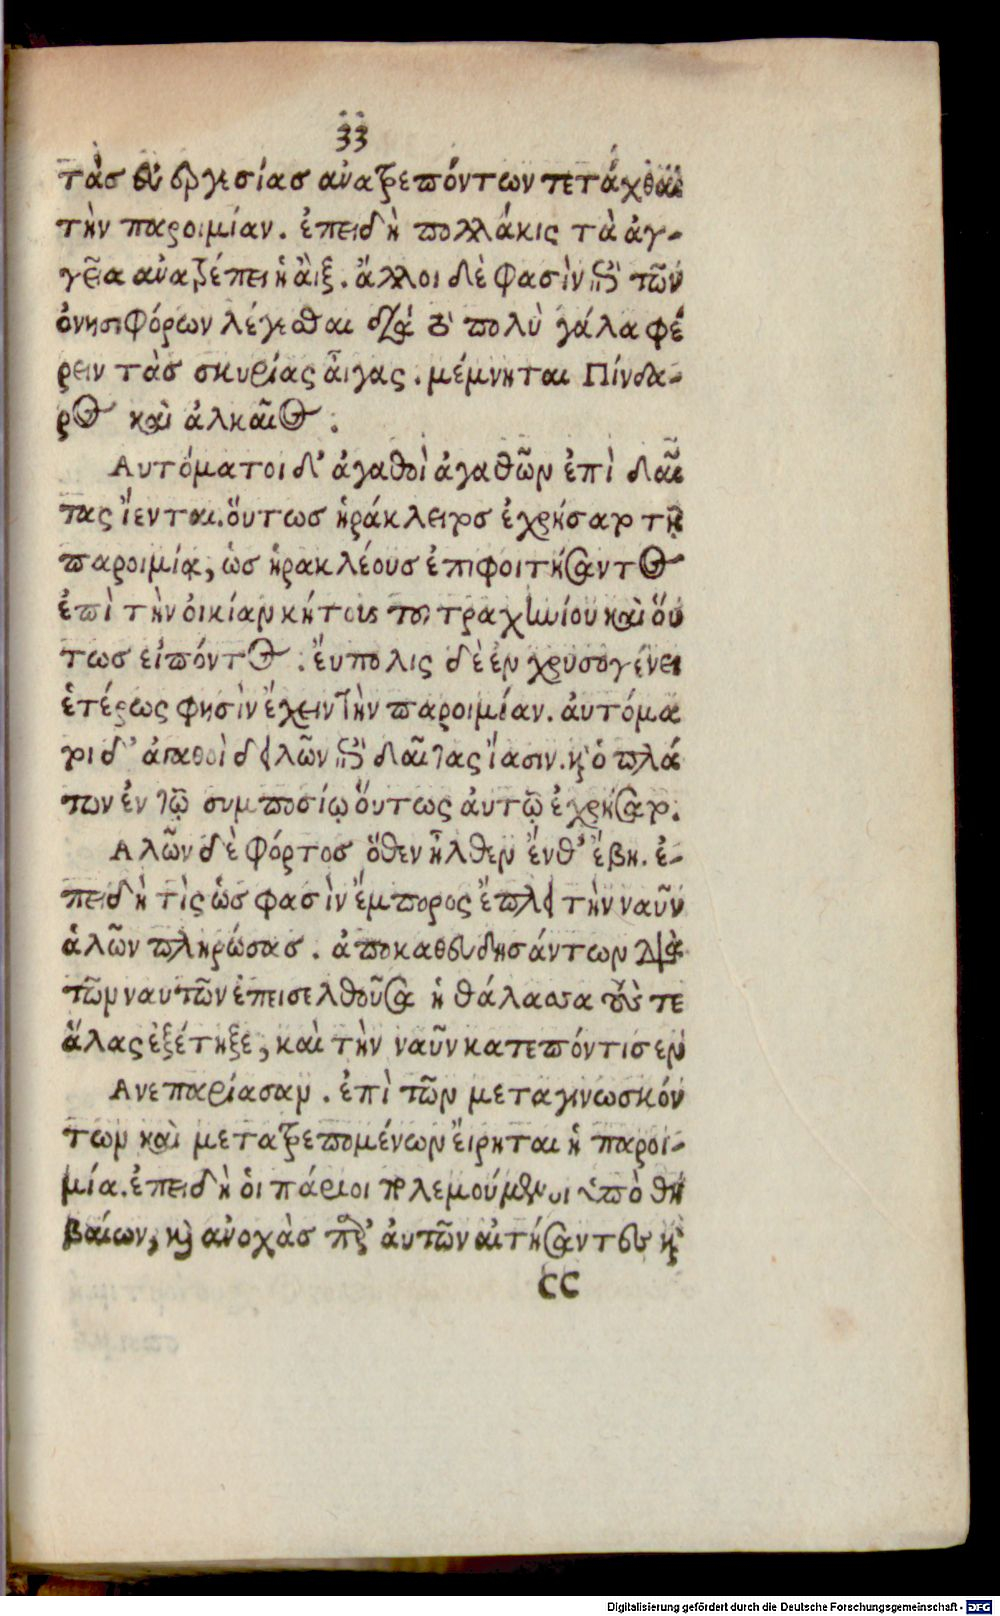 33
τὰσ εὐεργεσίασ ἀνατρεπόντων τετάχθαι
τὴν παροιμίαν. ἐπειδὴ πολλάκις τὰ ἀγ-
γεῖα ἀνατρέπει ἡ ἄιξ. ἄλλοι δὲ φασὶν ἐπὶ τῶν
ὀνησιφόρων λέγεσθαι διὰ τὸ πολὺ γάλα φέ
ρειν τὰσ σκυρίας ἆιγας. μέμνηται Πίνδα-
ρος καὶ ἀλκαῖος :
Αυτόματοι δ' ἀγαθοὶ ἀγαθῶν ἐπὶ δαῖ
τας ἵενται. ὅυτωσ ἡράκλειτοσ ἐχρήσατο τῇ
παροιμίᾳ, ὡσ ἡρακλέουσ ἐπιφοιτήσαντος
ἐπὶ τὴν ὀικίαν κήτους τοῦ τραχινίου καὶ ὅυ
τωσ εἰπόντος. ἔυπολις δὲ ἐν χρυσογένει
ἑτέρως φησὶν ἔχειν τὴν παροιμίαν. ἀυτόμα
τοι δ' ἀγαθοὶ δειλῶν ἐπὶ δαῖτας ἵασιν. καὶ ὁ πλά
των ἐν τῷ συμποσίῳ ὅυτως ἀυτῷ ἐχρήσατο.
Αλῶν δὲ φόρτοσ ὅθεν ἦλθεν ἔνθ' ἔβη. ἐ-
πειδὴ τὶς ὡσ φασὶν ἔμπορος ἔπλει τὴν ναῦν
ἁλῶν πληρώσασ. ἀποκαθευδησάντων δὲ
τῶν ναυτῶν ἐπεισελθοῦσα ἡ θάλασσα τούς τε
ἅλας ἐξέτηξε, καὶ τὴν ναῦν κατεπόντισεν
Ανεπαρίασαν. ἐπὶ τῶν μεταγινωσκόν
των καὶ μετατρεπομένων ἔιρηται ἡ παροι-
μία. ἐπειδὴ ὁι πάριοι πολεμούμενοι ὑπὸ θη
βαίων, καὶ ἀνοχὰσ παρ' ἀυτῶν αἰτήσαντεσ καὶ
CC
Digitalisierung gefördert durch die Deutsche Forschungsgemeinschaft - DFG